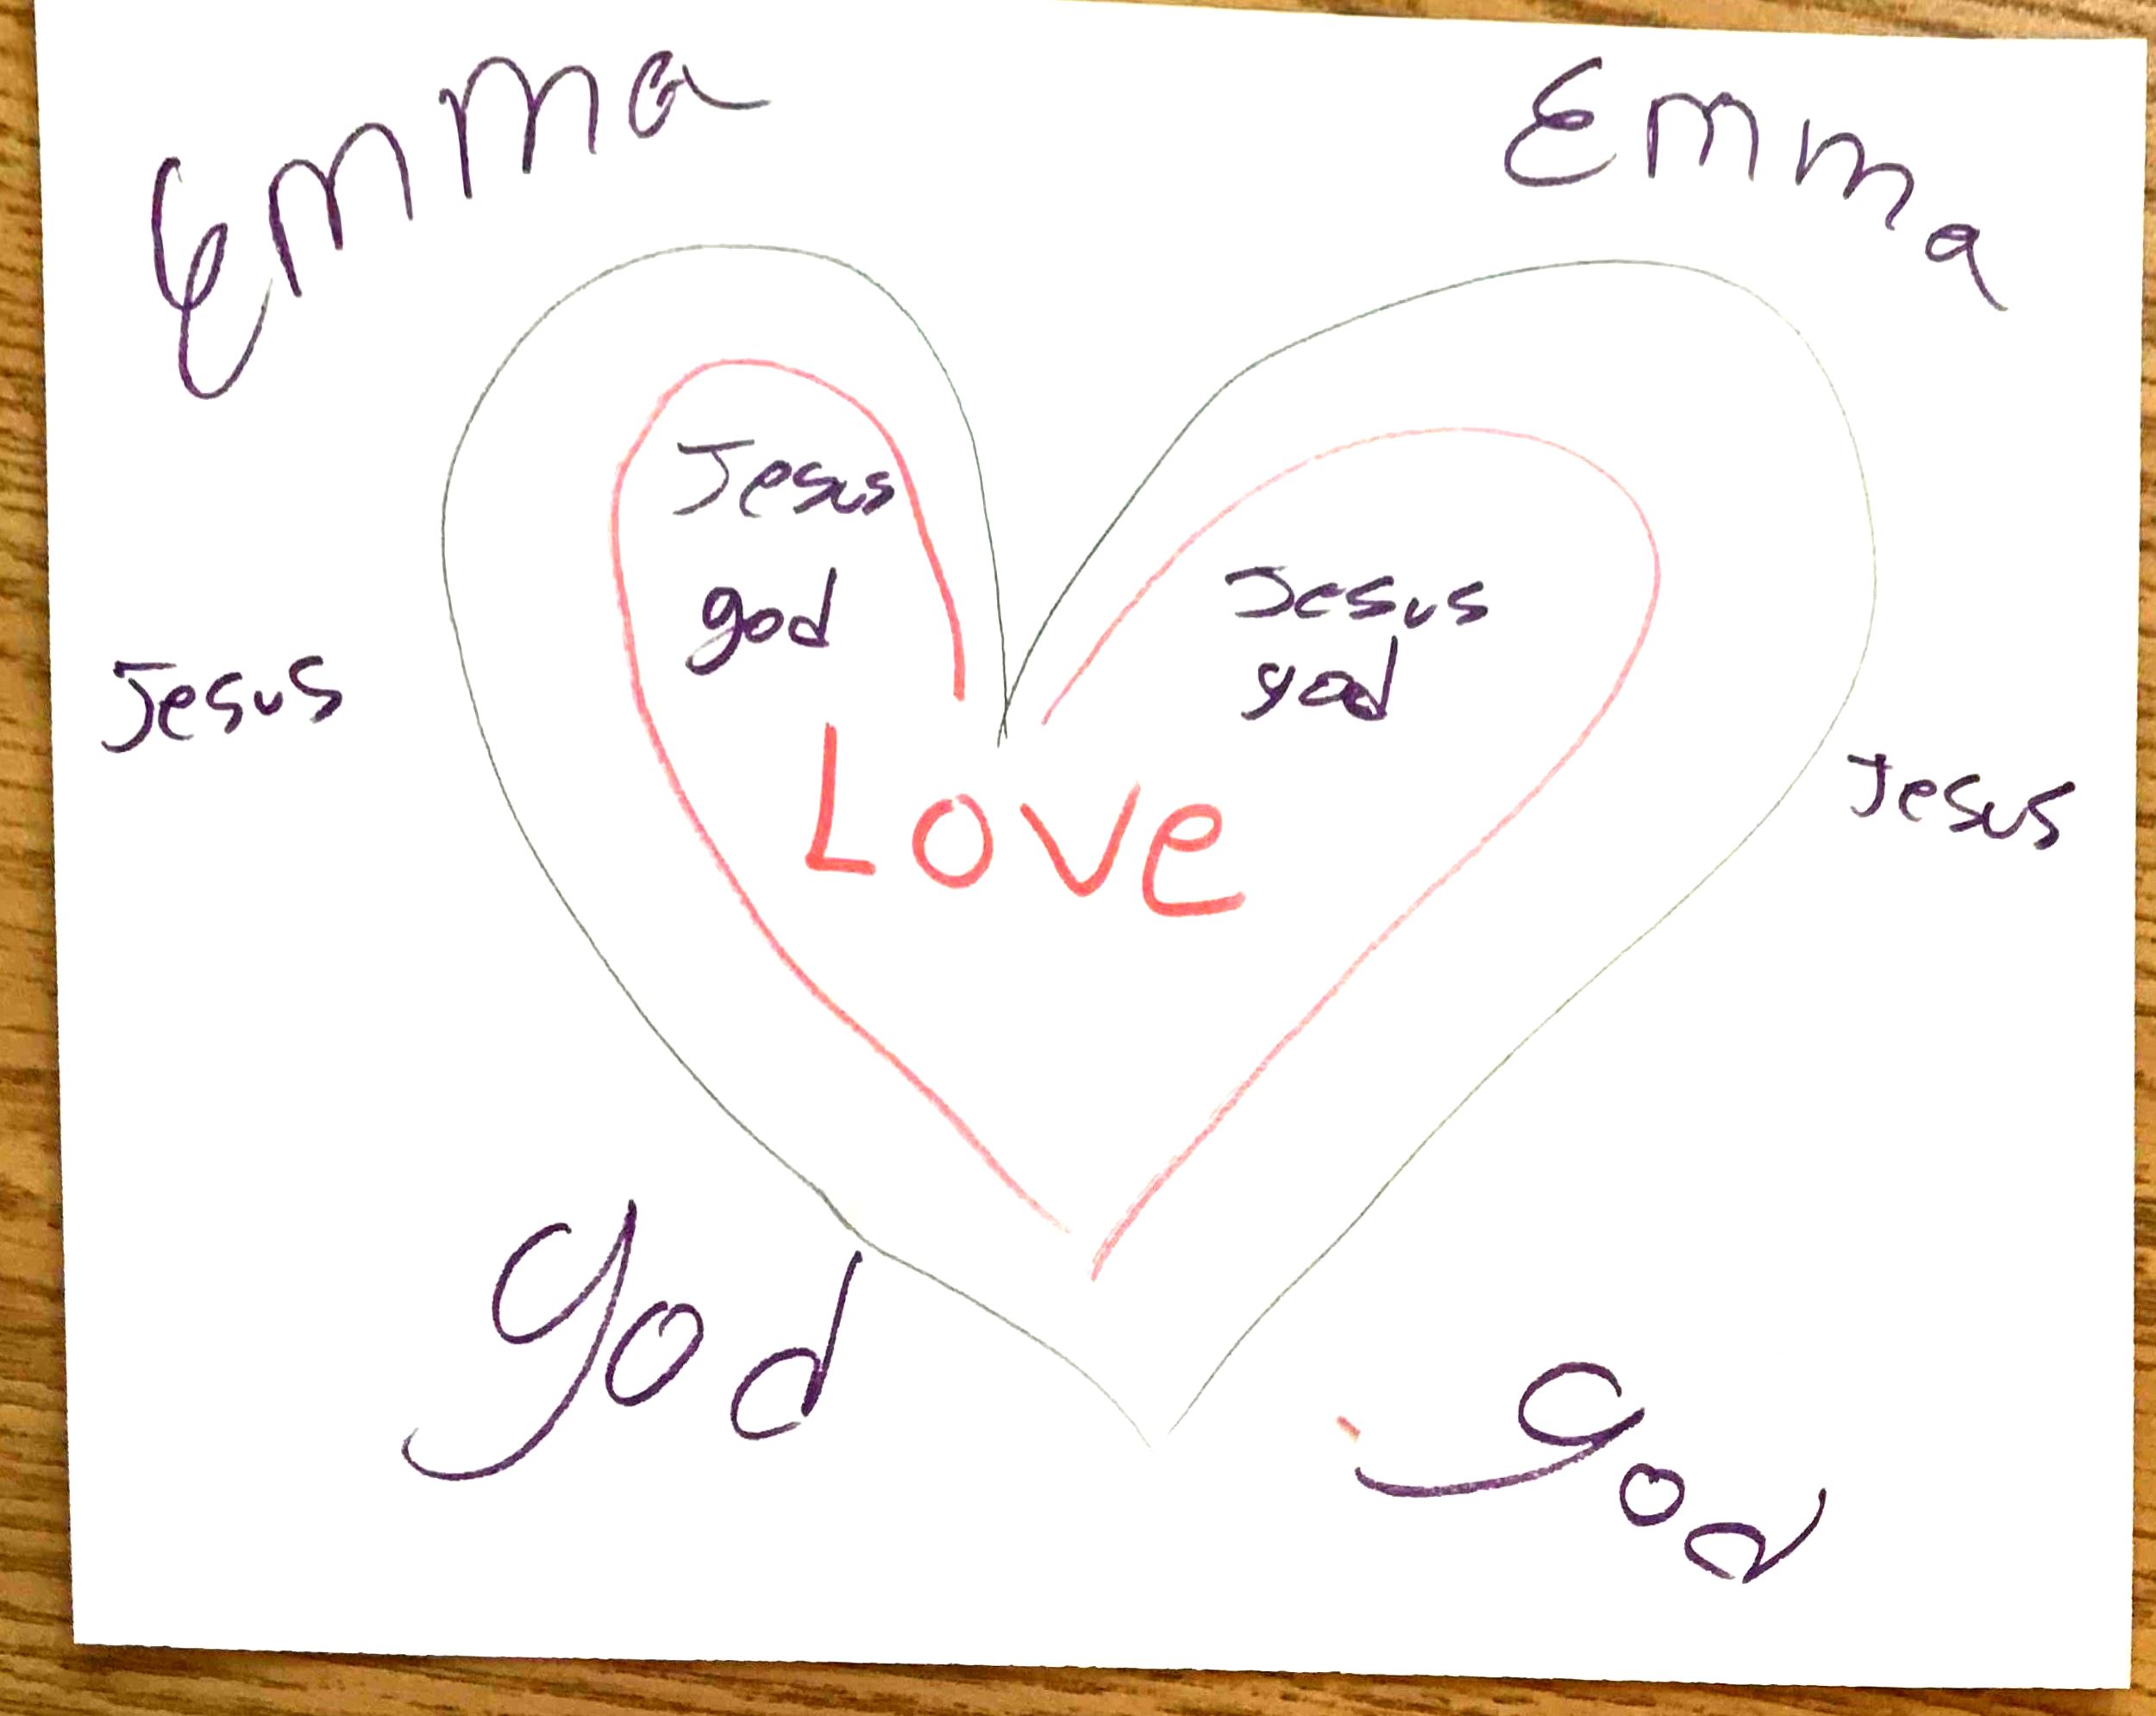 Emma
Emma
Jesus
god
Jesus
god
Jesus
Love
Jesus
god
god